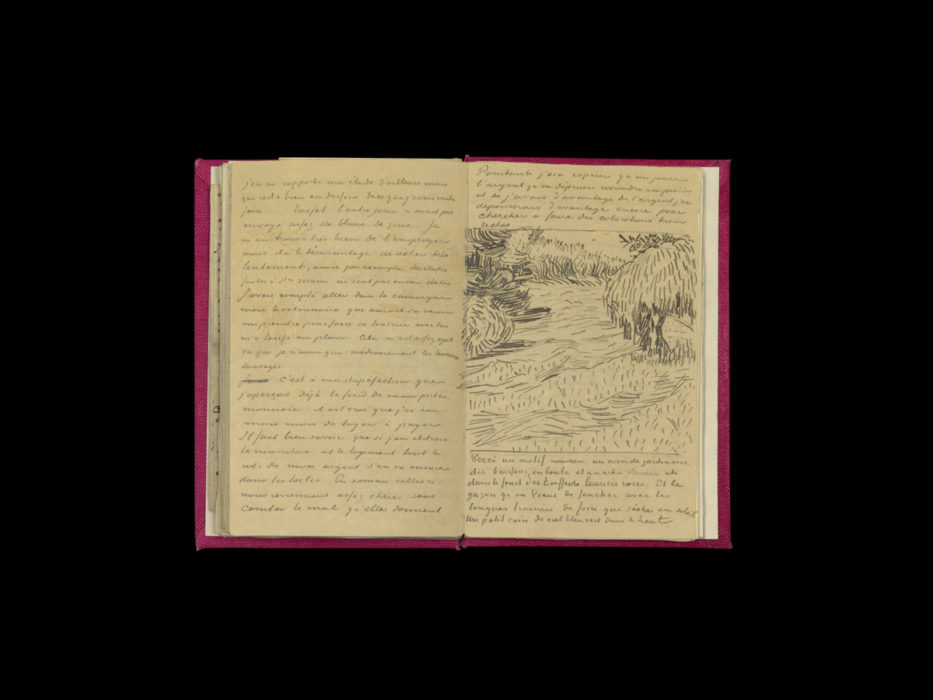 j'en ai rapporté une étude d'ailleurs mais
qui reste bien en dessous de ce que j'avais voulu
faire. Tasset l'autre jour n'avait pas
envoyé assez de blanc de zinc. Je
m'en trouve très bien de l'employer
mais il a le désavantage de secher très
lentement, ainsi par exemple les études
faites à Stes Maries ne sont pas encore seches
J'avais compté aller dans la camargue
mais le veterinaire qui aurait du venir
me prendre pour faire sa tournée avec lui
m'a laissé en plan. Cela m'est assez egal
vu que je n'aime que médiocrement les taureaux
sauvages
C'est à ma stupéfaction que
j'aperçois déjà le fond de mon porte
monnaie. il est vrai que j'ai eu
mon mois de loyer à payer
Il faut bien savoir que si j'en deduis
la nourriture et le logement tout le
reste de mon argent s'en va encore
dans les toiles. En somme celles ci
nous reviennent assez chères sans
compter le mal qu'elles donnent
Pourtant j'ose espérer qu'un jour
l'argent qu'on dépense reviendra en partie
et si j'avais d'avantage de l'argent j'en
depenserais d'avantage encore pour
chercher à faire des colorations bien
riches
Voici un motif nouveau un coin de jardin avec
des buissons en boule et un arbre pleureur et
dans le fond des touffes de lauriers roses. Et le
gazon qu'on vient de faucher avec les
longues trainées de foin qui sèche au soleil
Un petit coin de ciel bleu vert dans le haut